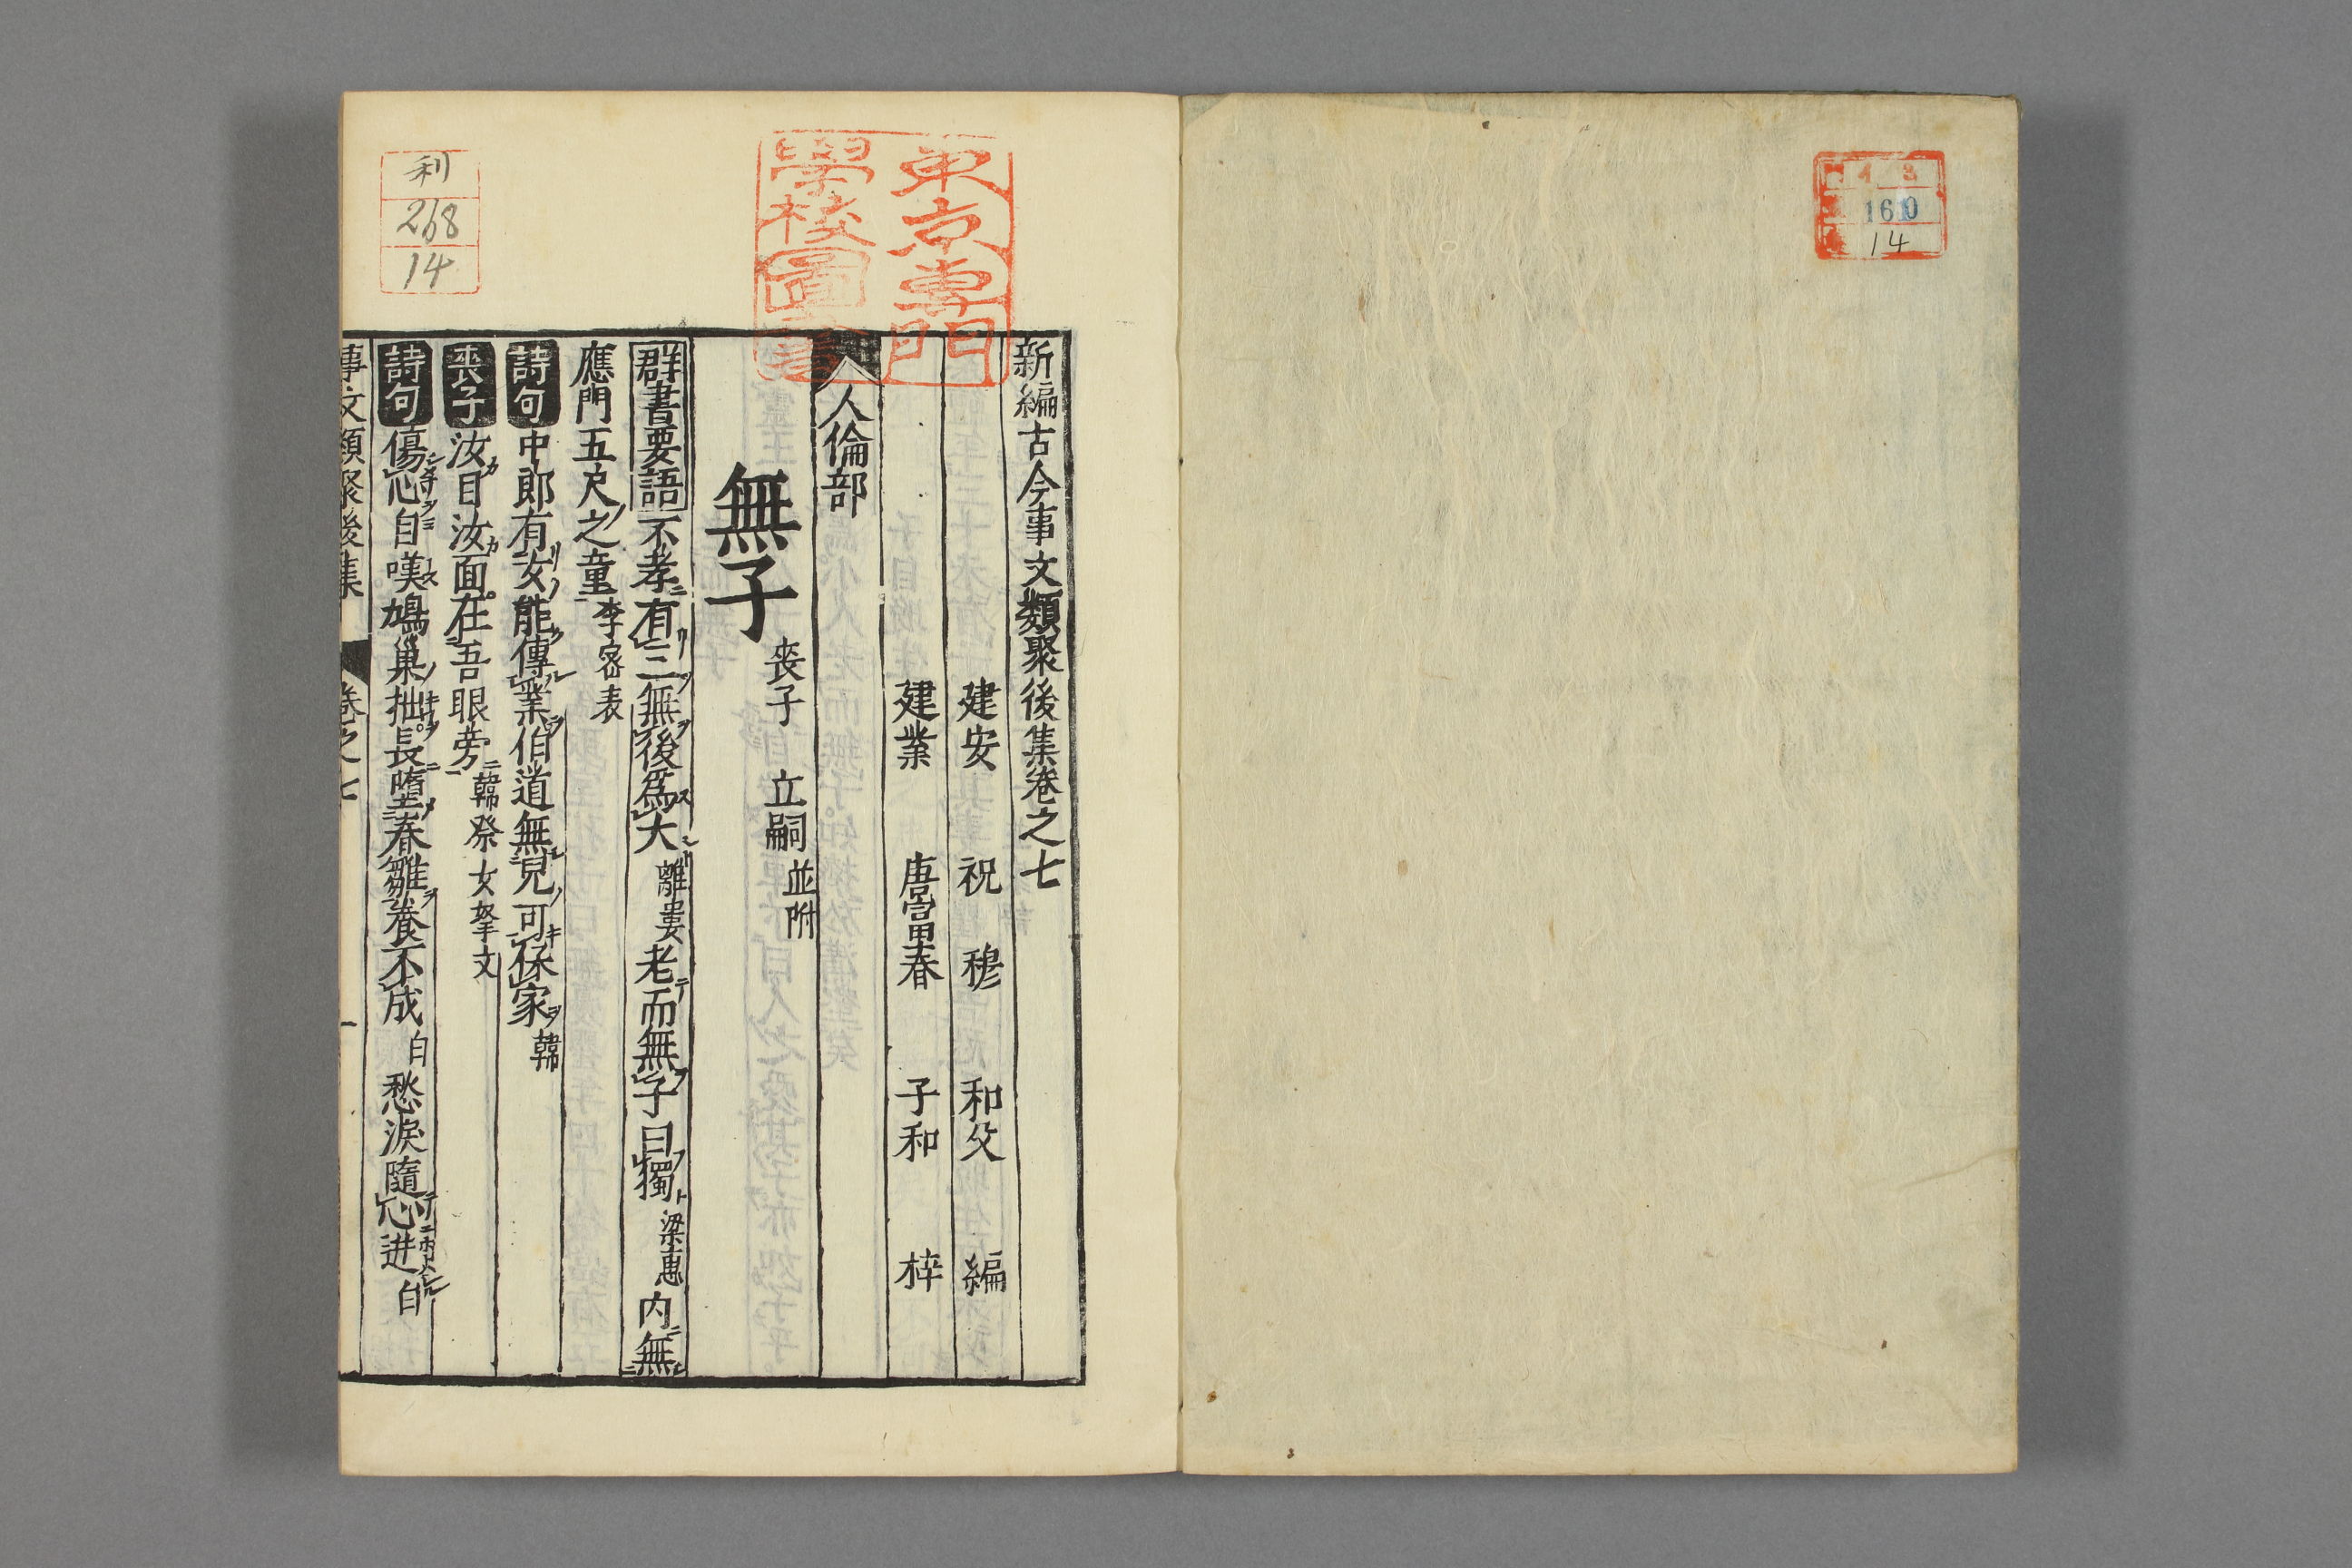 160
14
東京專門
學校圖書
利
268
14
新編古今事文類聚後集卷之七
建安 祝 穆 和父 編
建業 唐富春 子和 梓
人倫部
無子 喪子 立嗣 並附
群書要語 不孝有三無後爲大 離婁 老而無子曰獨 梁惠 内無
應門五尺之童 李密表
詩句 中郎有女能傳業伯道無兒可保家 韓
喪子 汝目汝面在吾眼旁 韓祭女挐文
詩句 傷心自嘆鳩巢拙長墮春雛養不成 白 愁淚隨心迸 白
事文類聚後集 卷之七 一